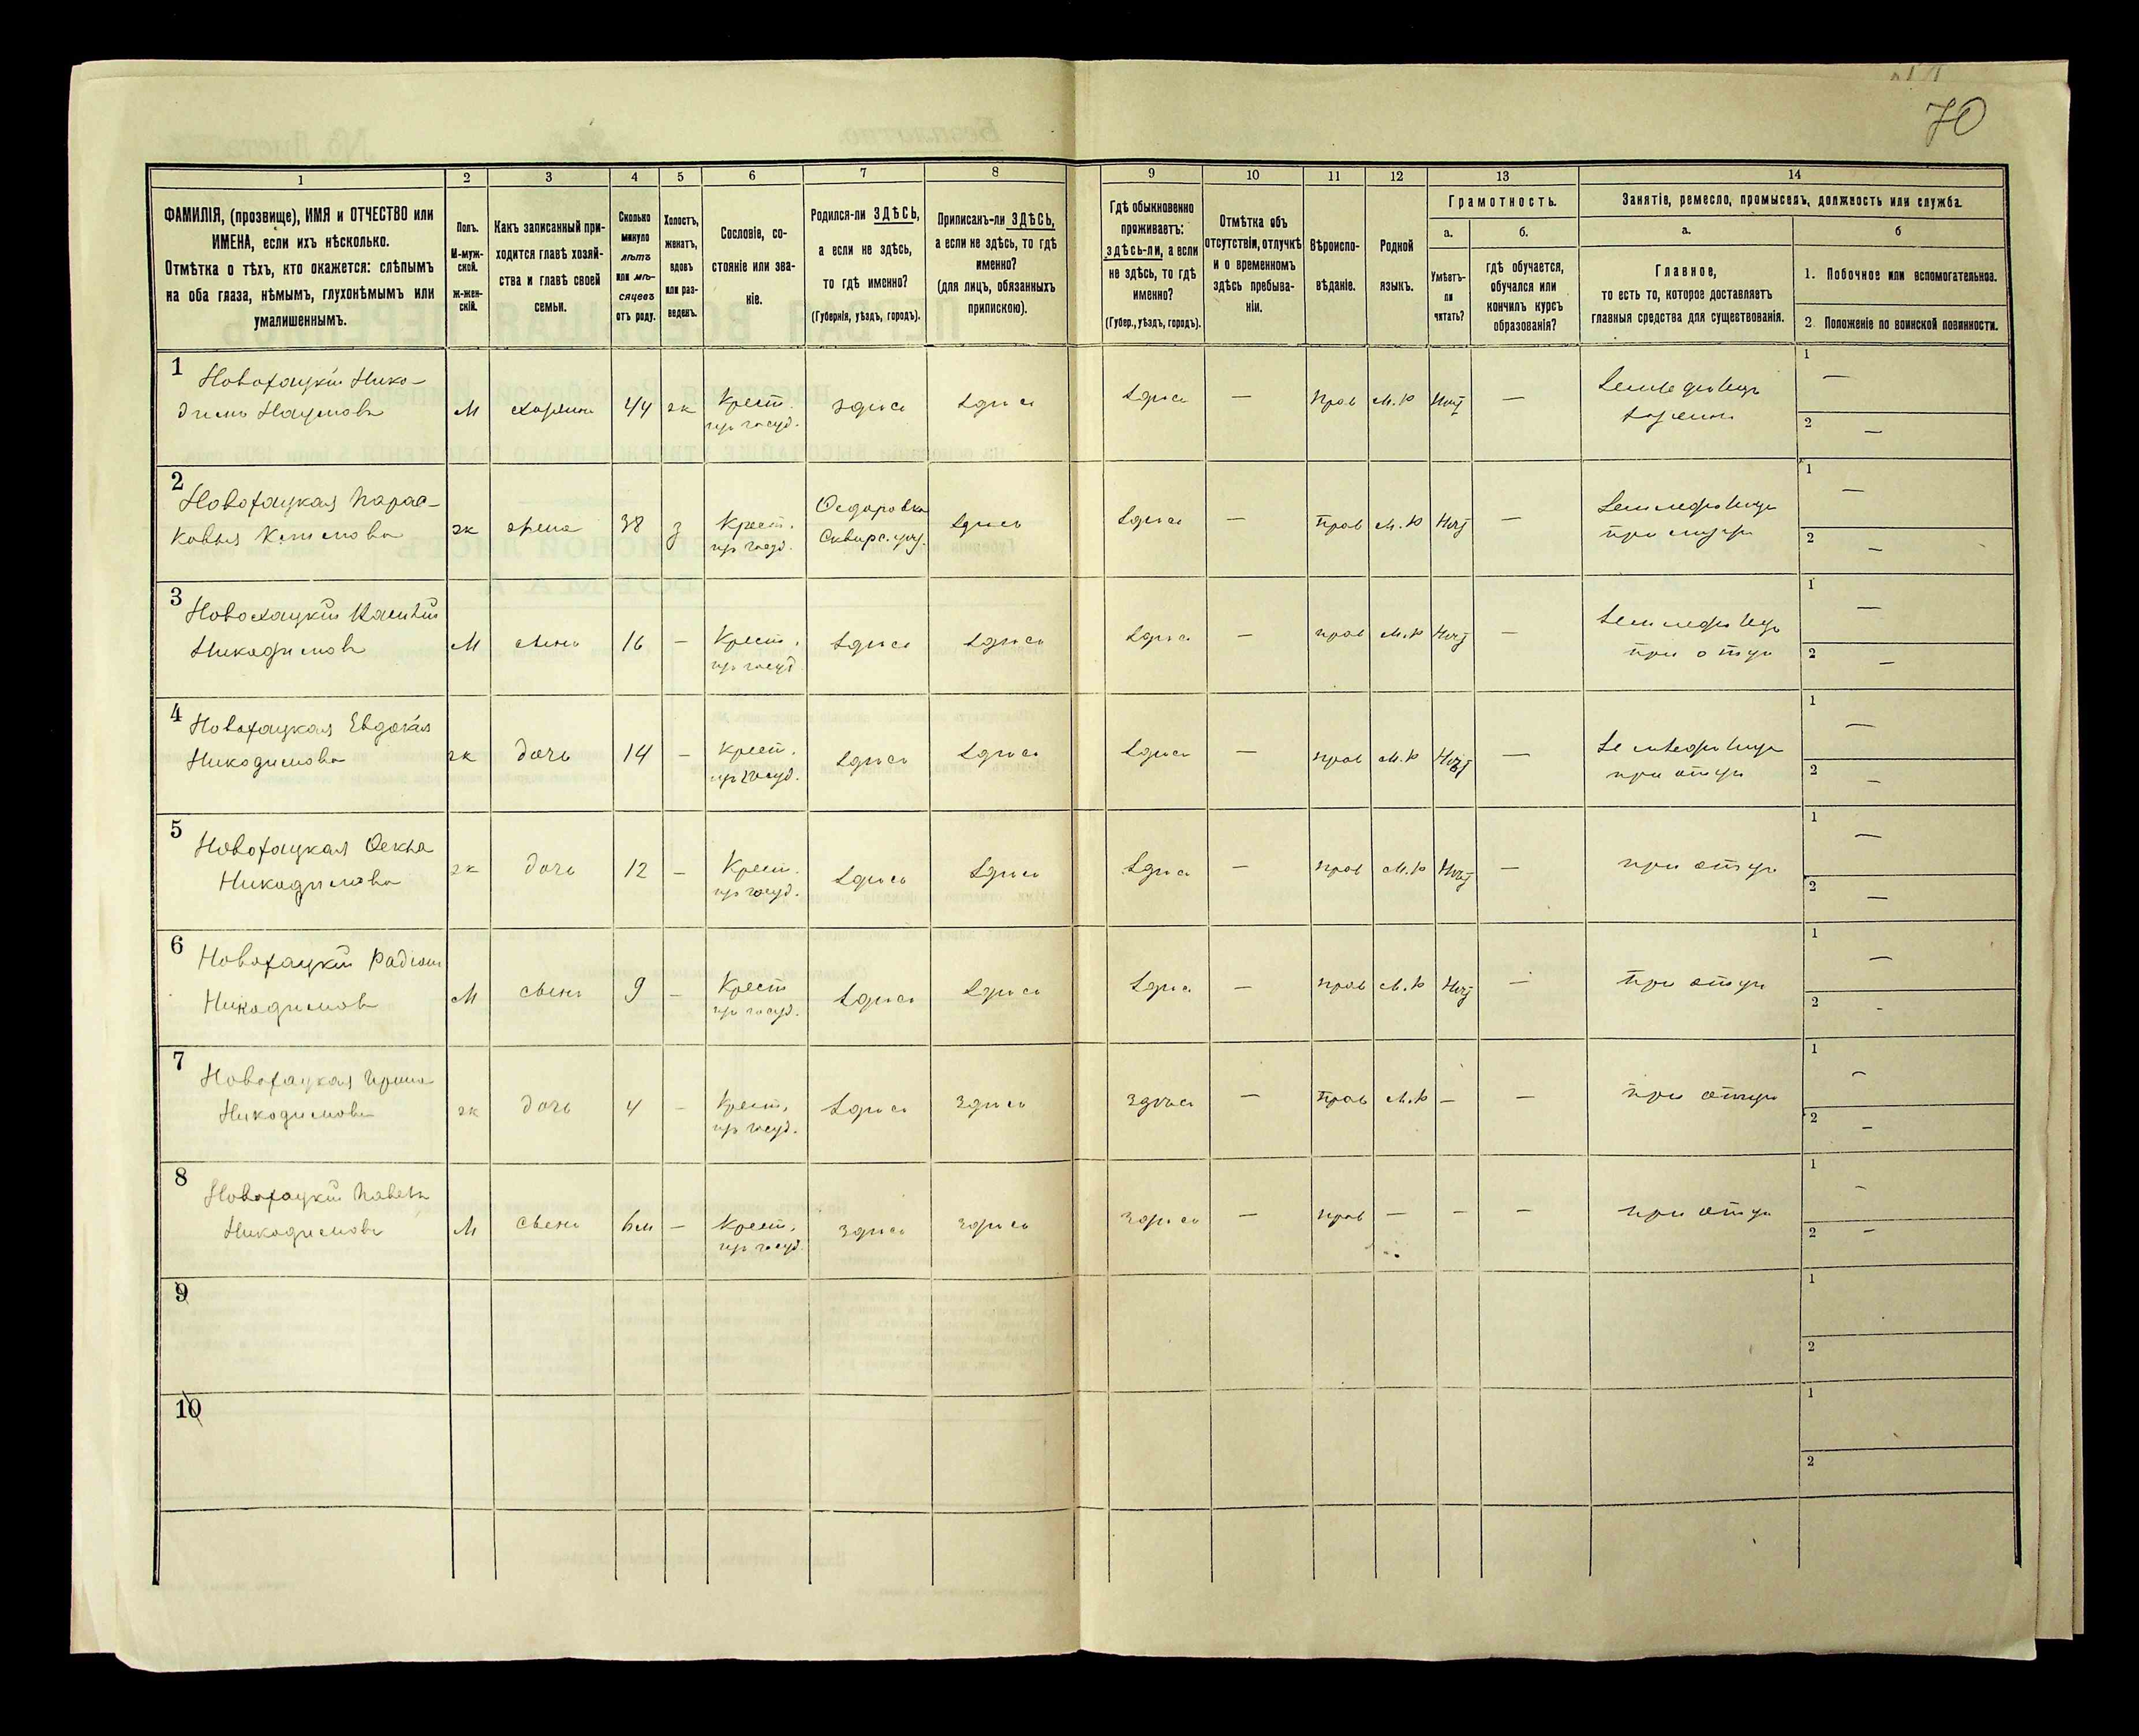 70
1 2 3 4 5 6 7 8 9 10 11 12 13 14
ФАМИЛІЯ, (прозвище), ИМЯ и ОТЧЕСТВО или
ИМЕНА, если ихъ нѣсколько.
Отмѣтка о тѣхъ, кто окажется: слѣпымъ
на оба глаза, нѣмымъ, глухонѣмымъ или
умалишеннымъ.
Полъ.
М-муж-
ской.
Ж-жен-
скій.
Какъ записанный при-
ходится главѣ хозяй-
ства и главѣ своей
семьи.
Сколько
минуло
лѣтъ
или мѣ-
сяцевъ
отъ роду.
Холостъ,
женатъ,
вдовъ
или раз-
веденъ.
Сословіе, со-
стояніе или зва-
ніе.
Родился-ли ЗДѢСЬ,
а если не здѣсь,
то гдѣ именно?
(Губернія, уѣздъ, городъ).
Приписанъ-ли ЗДѢСЬ,
а если не здѣсь, то гдѣ
именно?
(для лицъ, обязанныхъ
припискою).
Гдѣ обыкновенно
проживаетъ:
здѣсь-ли, а если
не здѣсь, то гдѣ
именно?
(Губер., уѣздъ, городъ).
Отмѣтка объ
отсутствіи, отлучкѣ
и о временномъ
здѣсь пребыва-
ніи.
Вѣроиспо-
вѣданіе.
Родной
языкъ.
Грамотность.
а.
Умѣетъ-
ли
читать?
б.
гдѣ обучается,
обучался или
кончилъ курсъ
образованія?
Занятіе, ремесло, промыселъ, должность или служба.
а.
Главное,
то есть то, которое доставляетъ
главныя средства для существованія.
б
1. Побочное или вспомогательное.
2. Положеніе по воинской повинности.
1
Новохацкій Нико-
димъ Наумовъ
М хозяинъ 44 ж Крест.
из госуд.
здѣсь здѣсь здѣсь — прав М.р Нѣт — Земледѣлецъ
хозяинъ
1 —
2 —
2
Новохацкая Парас-
ковья Климова
ж жена 38 з Крест.
из госуд.
Федоровка
Сквирс. уѣз.
здѣсь здѣсь — прав М.р Нѣт — Земледѣлица
при мужѣ
1 —
2 —
3
Новохацкій
Никодимовъ
М сынъ 16 — Крест.
из госуд
здѣсь здѣсь здѣсь — прав М.р Нѣт — Земледѣлецъ
при отцѣ
1 —
2 —
4
Новохацкая Евдокія
Никодимова
ж дочь 14 — Крест.
из госуд.
здѣсь здѣсь здѣсь — прав М.р Нѣт — Земледѣлица
при отцѣ
1 —
2 —
5
Новохацкая Фекла
Никодимова
ж дочь 12 — Крест.
из госуд.
здѣсь здѣсь здѣсь — прав М.р Нѣт — при отцѣ
1 —
2 —
6
Новохацкій Радіонъ
Никодимов
М сынъ 9 — Крест
из госуд.
здѣсь здѣсь здѣсь — прав М.р Нѣт — при отцѣ
1 —
2 -
7
Новохацкая Ирина
Никодимова
ж дочь 4 — Крест.
из госуд.
здѣсь здѣсь здѣсь — прав М.р — — при отцѣ
1 —
2 —
8
Новохацкій Павелъ
Никодимовъ
М сынъ 6м — Крест.
из госуд.
здѣсь здѣсь здѣсь — прав — — — при отцѣ
1 —
2 —
9
1
2
10
1
2